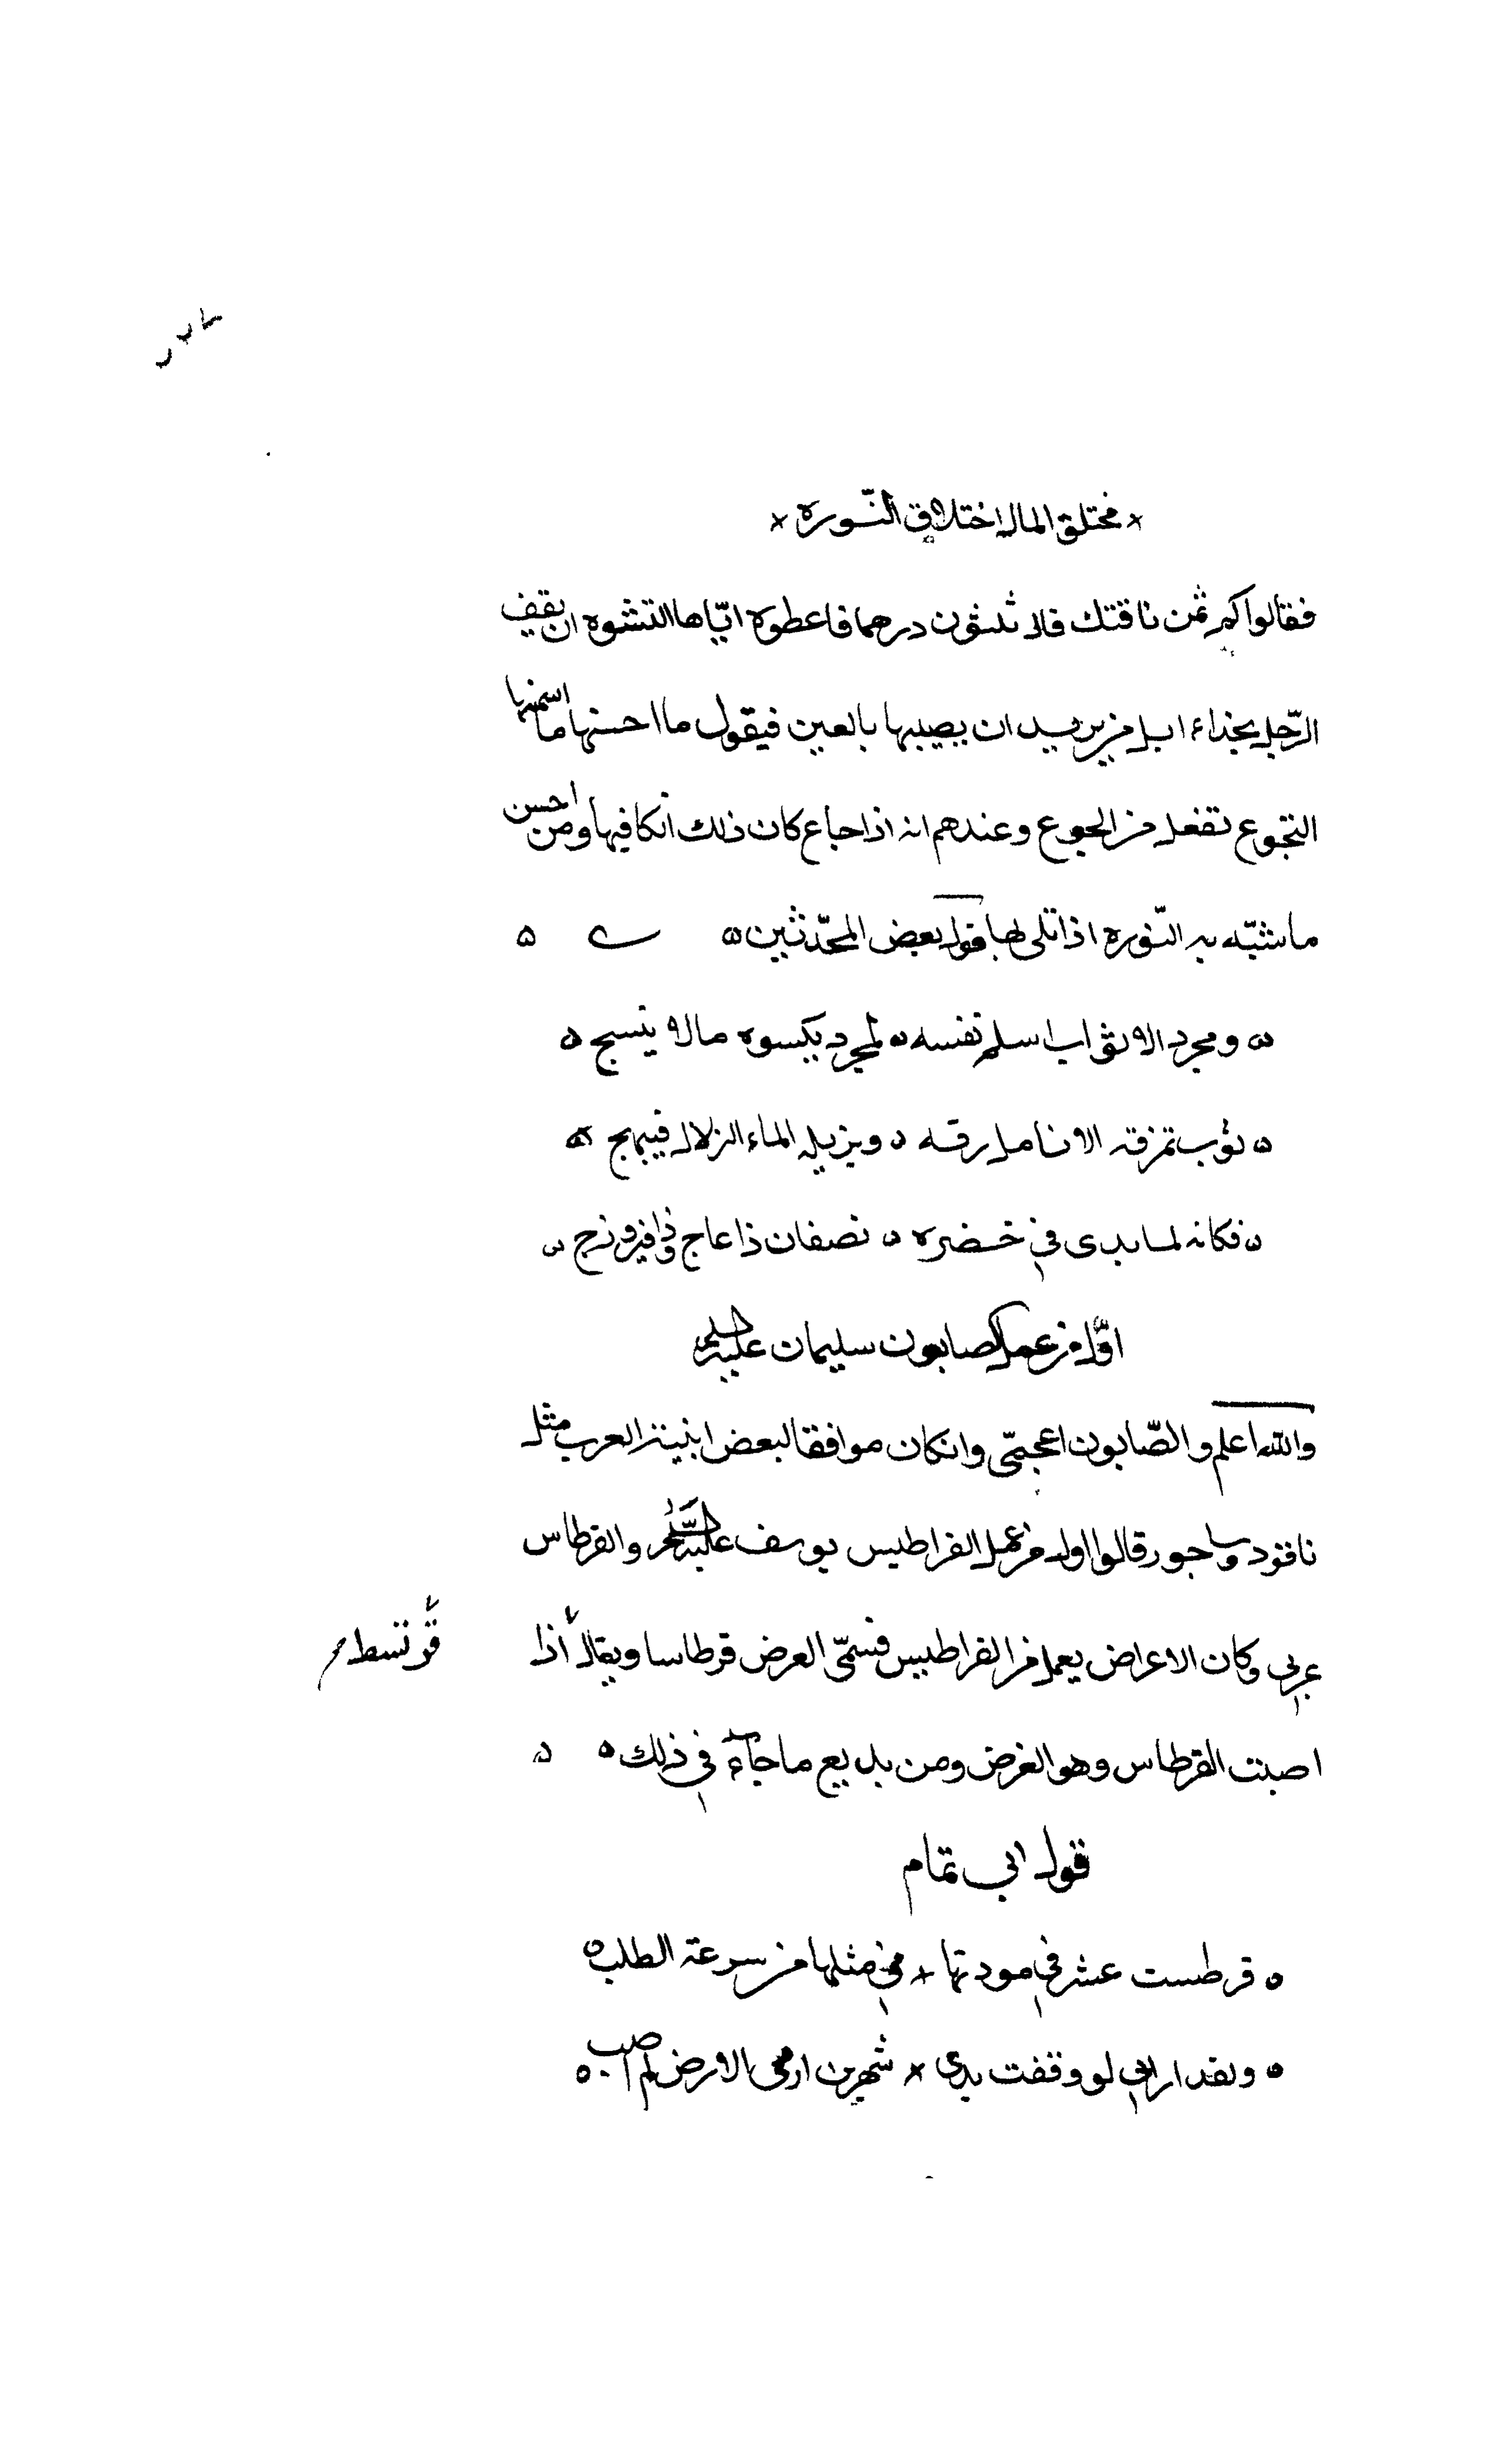 محتلق المال احتلاق النّوره
فقالوا كم ثمن ناقتك قال ثلثون درهما فاعطوه ايّاها التشوه ان يقف
الرّجل بحذاء ابل من يريد ان يصيبها بالعين فيقول ما احسنها ما اسمنها
التجوع تفعل من الجوع وعندهم انه اذا جاع كان ذلك انكا فيها ومن احسن
ما شبّه به النّوره اذا تلى لها قول بعض المحّدثين
ومجرد الاثواب اسلم نفسه لمجرد يكسوه مالا ينسج
ثوب تمزقه الانامل رقه ويزيله الماء الزلال فيبهج
فكانه لما بدى في خضره نصفان ذا عاج وذا فيروزج
اوّل من عمل الصابون سليمان عليه السلم
والله اعلم والصّابون اعجميّ وانكان موافقا لبعض ابنية العرب مثل
ناقود وساجور قالوا اول من عمل القراطيس يوسف عليه السّلم والقرطاس
عربي وكان الاعراض يعمل من القراطيس فسمّى العرض قرطاسا ويقال اذا
اصبت القرطاس وهو الغرض ومن بديع ما جآء في ذلك
قول ابي تمام
قرطست عشر في مودتها في مثلها من سرعة الطلب
ولقد اراني لو وقفت يدي شهرين ارمى الارض لم اصب